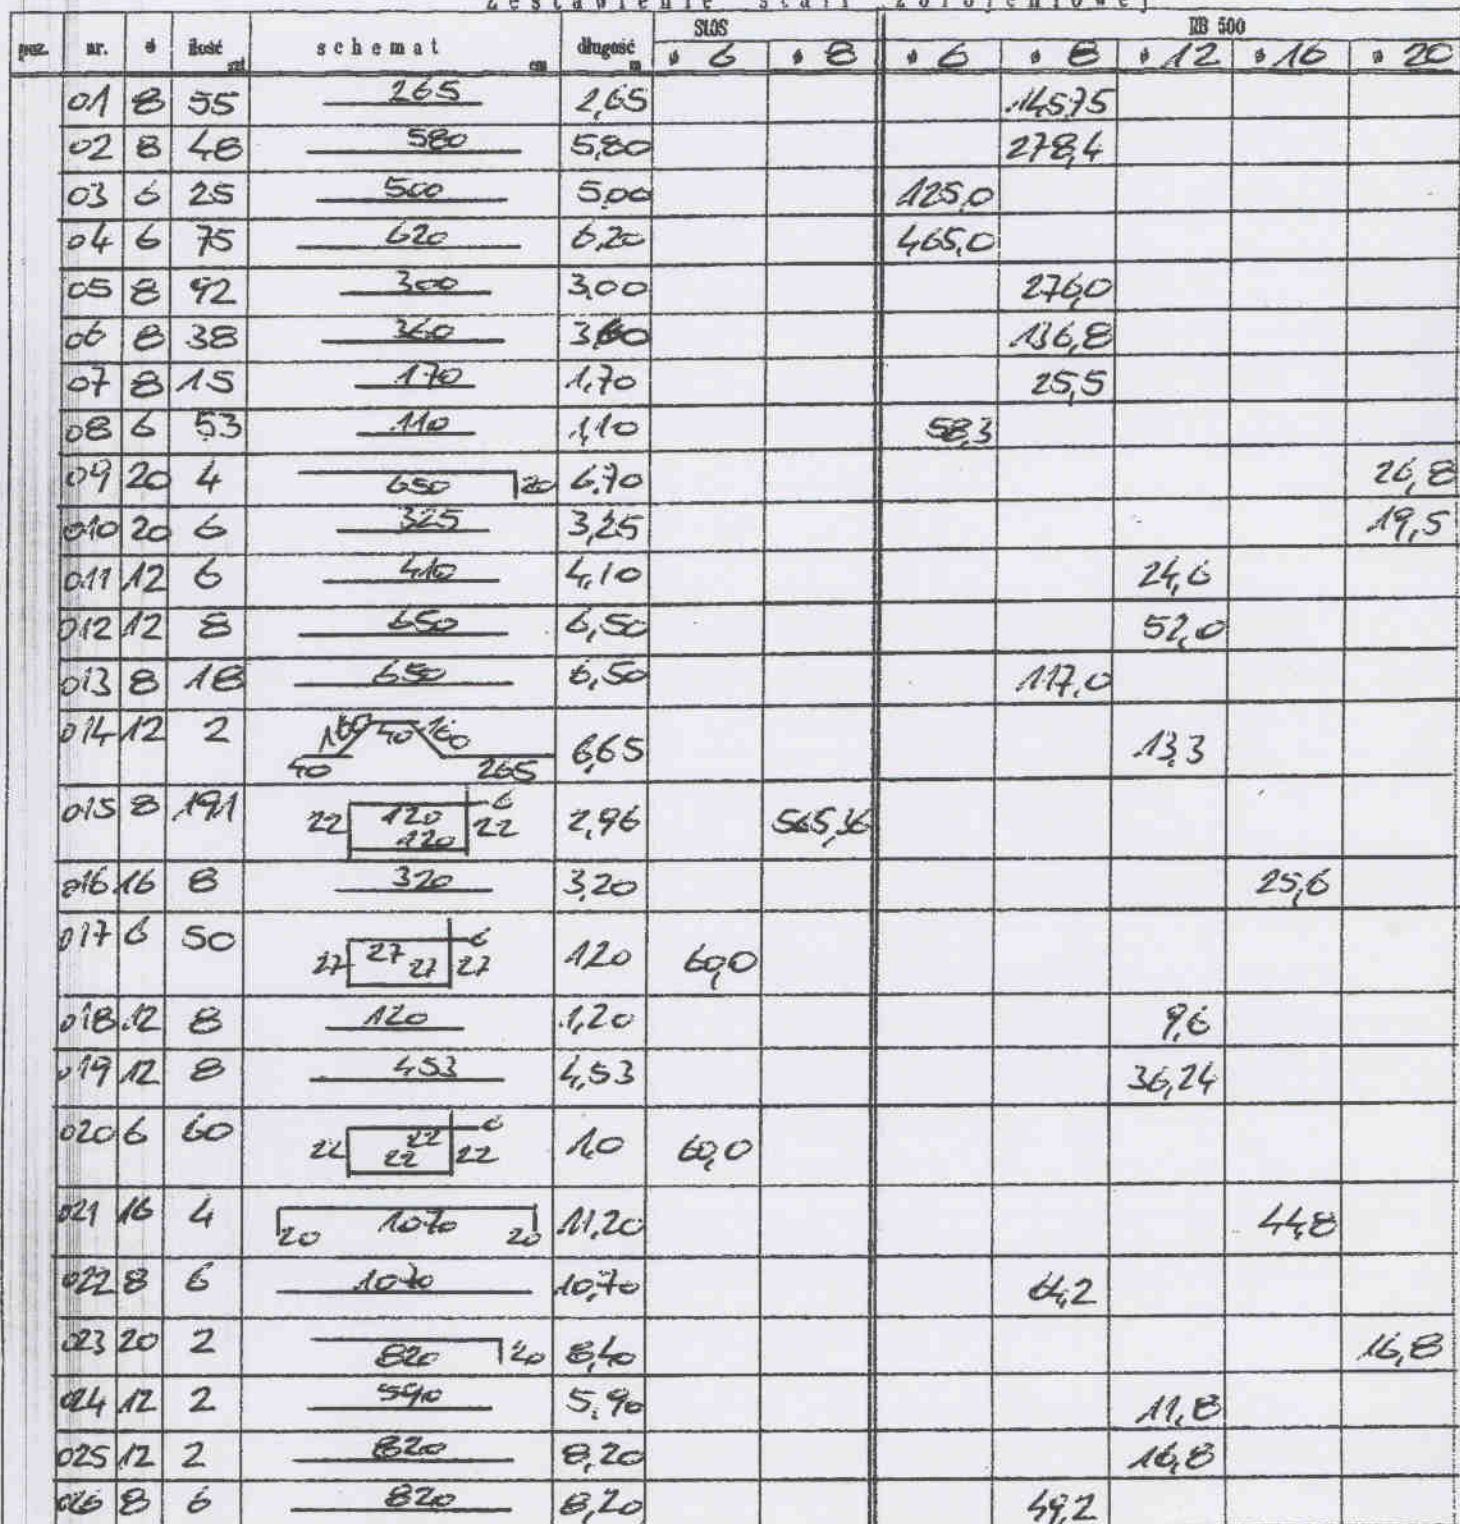 Zestawienie stali zbrojeniowej
StOS RB 500
poz. nr. ø ilość szt schemat cm długość m ø 6 ø 8 ø 6 ø 8 ø 12 ø 16 ø 20
01 8 55 265 2,65 145,75
02 8 48 580 5,80 278,4
03 6 25 500 5,00 125,0
04 6 75 620 6,20 465,0
05 8 92 300 3,00 276,0
06 8 38 360 3,60 136,8
07 8 15 170 1,70 25,5
08 6 53 110 1,10 58,3
09 20 4 650 20 6,70 26,8
010 20 6 325 3,25 19,5
011 12 6 410 4,10 24,6
012 12 8 650 6,50 52,0
013 8 18 650 6,50 117,0
014 12 2 40 160 40 160 265 6,65 13,3
015 8 191 22 120 120 6 22 2,96 565,36
016 16 8 320 3,20 25,6
017 6 50 27 27 27 6 27 1,20 60,0
018 12 8 120 1,20 9,6
019 12 8 453 4,53 36,24
020 6 60 22 22 22 6 22 1,0 60,0
021 16 4 20 1070 20 11,20 44,8
022 8 6 1070 10,70 64,2
023 20 2 820 20 8,40 16,8
024 12 2 590 5,90 11,8
025 12 2 820 8,20 16,8
026 8 6 820 8,20 49,2